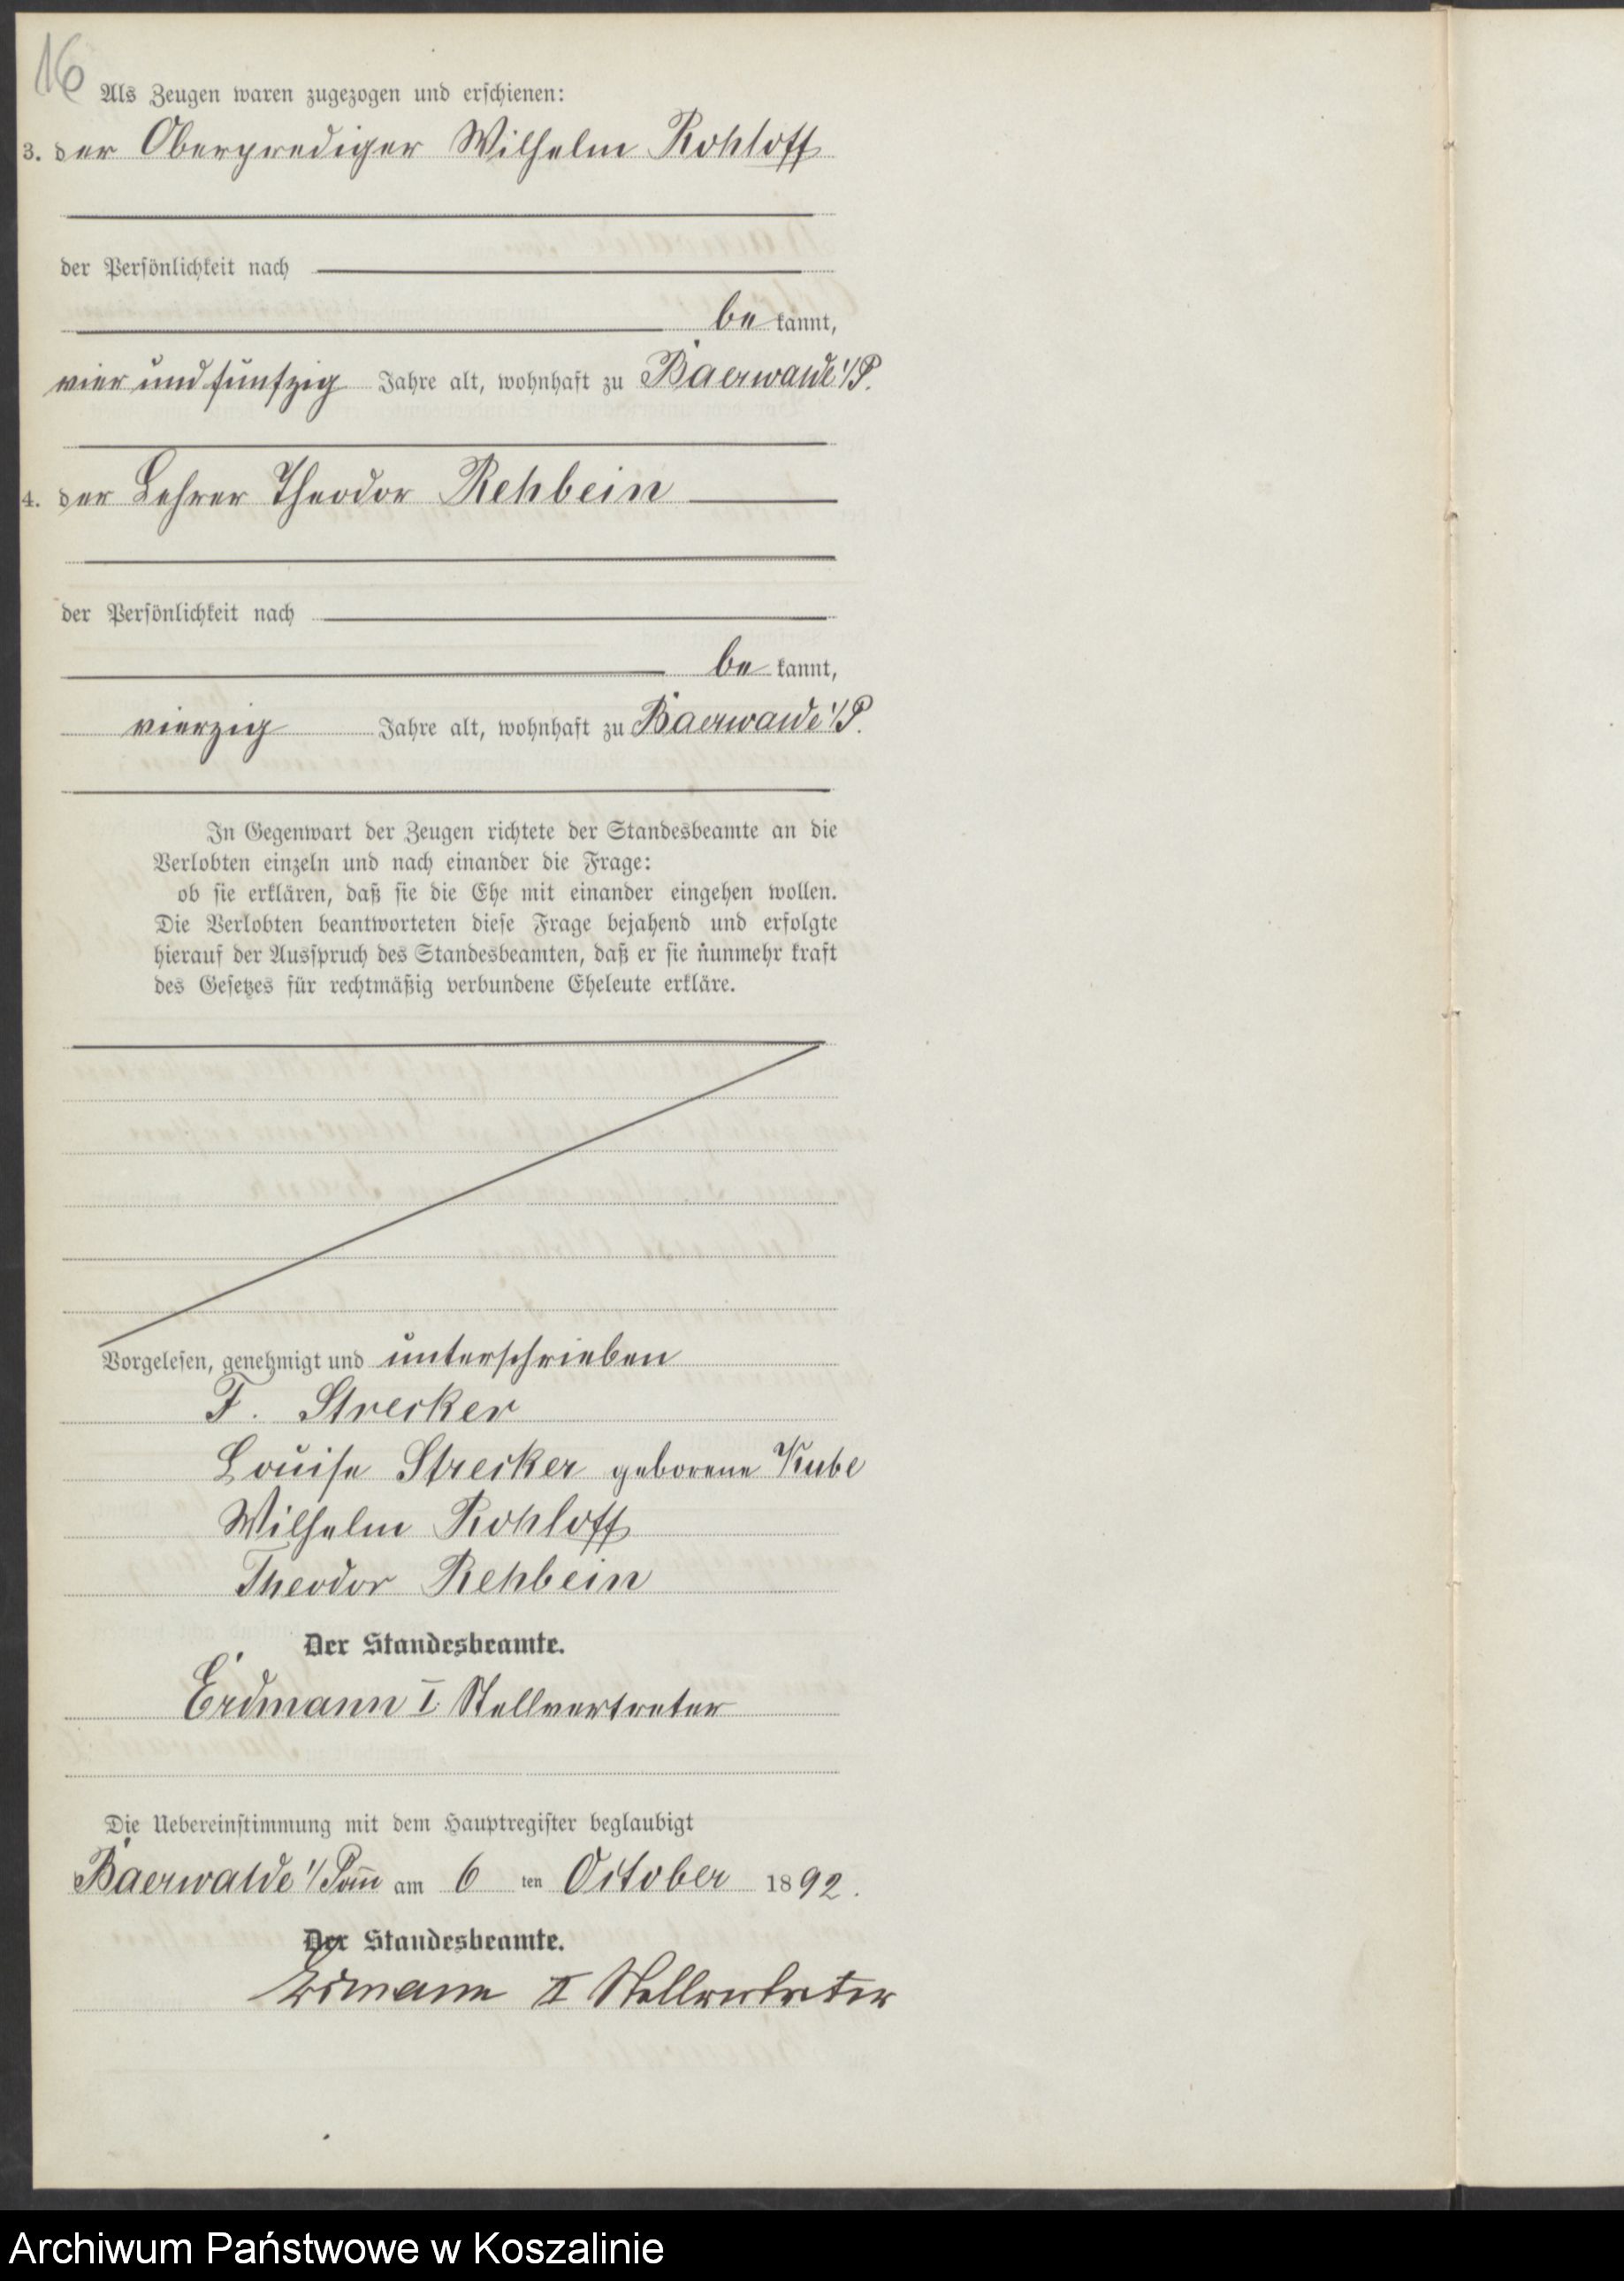 16
Als Zeugen waren zugezogen und erschienen:
3. der Oberprediger Wilhelm Rohloff
der Persönlichkeit nach
be kannt,
vier und fünfzig Jahre alt, wohnhaft zu Baerwalde i/P.
4. der Lehrer Theodor Rehbein
der Persönlichkeit nach
be kannt,
vierzig Jahre alt, wohnhaft zu Baerwalde i/P.
In Gegenwart der Zeugen richtete der Standesbeamte an die
Verlobten einzeln und nach einander die Frage:
ob sie erklären, daß sie die Ehe mit einander eingehen wollen.
Die Verlobten beantworteten diese Frage bejahend und erfolgte
hierauf der Ausspruch des Standesbeamten, daß er sie nunmehr kraft
des Gesetzes für rechtmäßig verbundene Eheleute erkläre.
Vorgelesen, genehmigt und unterschrieben
F. Strecker
Louise Strecker geborene Kube
Wilhelm Rohloff
Theodor Rehbein
Der Standesbeamte.
Erdmann I. Stellvertreter
Die Uebereinstimmung mit dem Hauptregister beglaubigt
Baerwalde i/Pom̄ am 6 ten October 1892.
Der Standesbeamte.
Erdmann II Stellvertreter
Archiwum Państwowe w Koszalinie